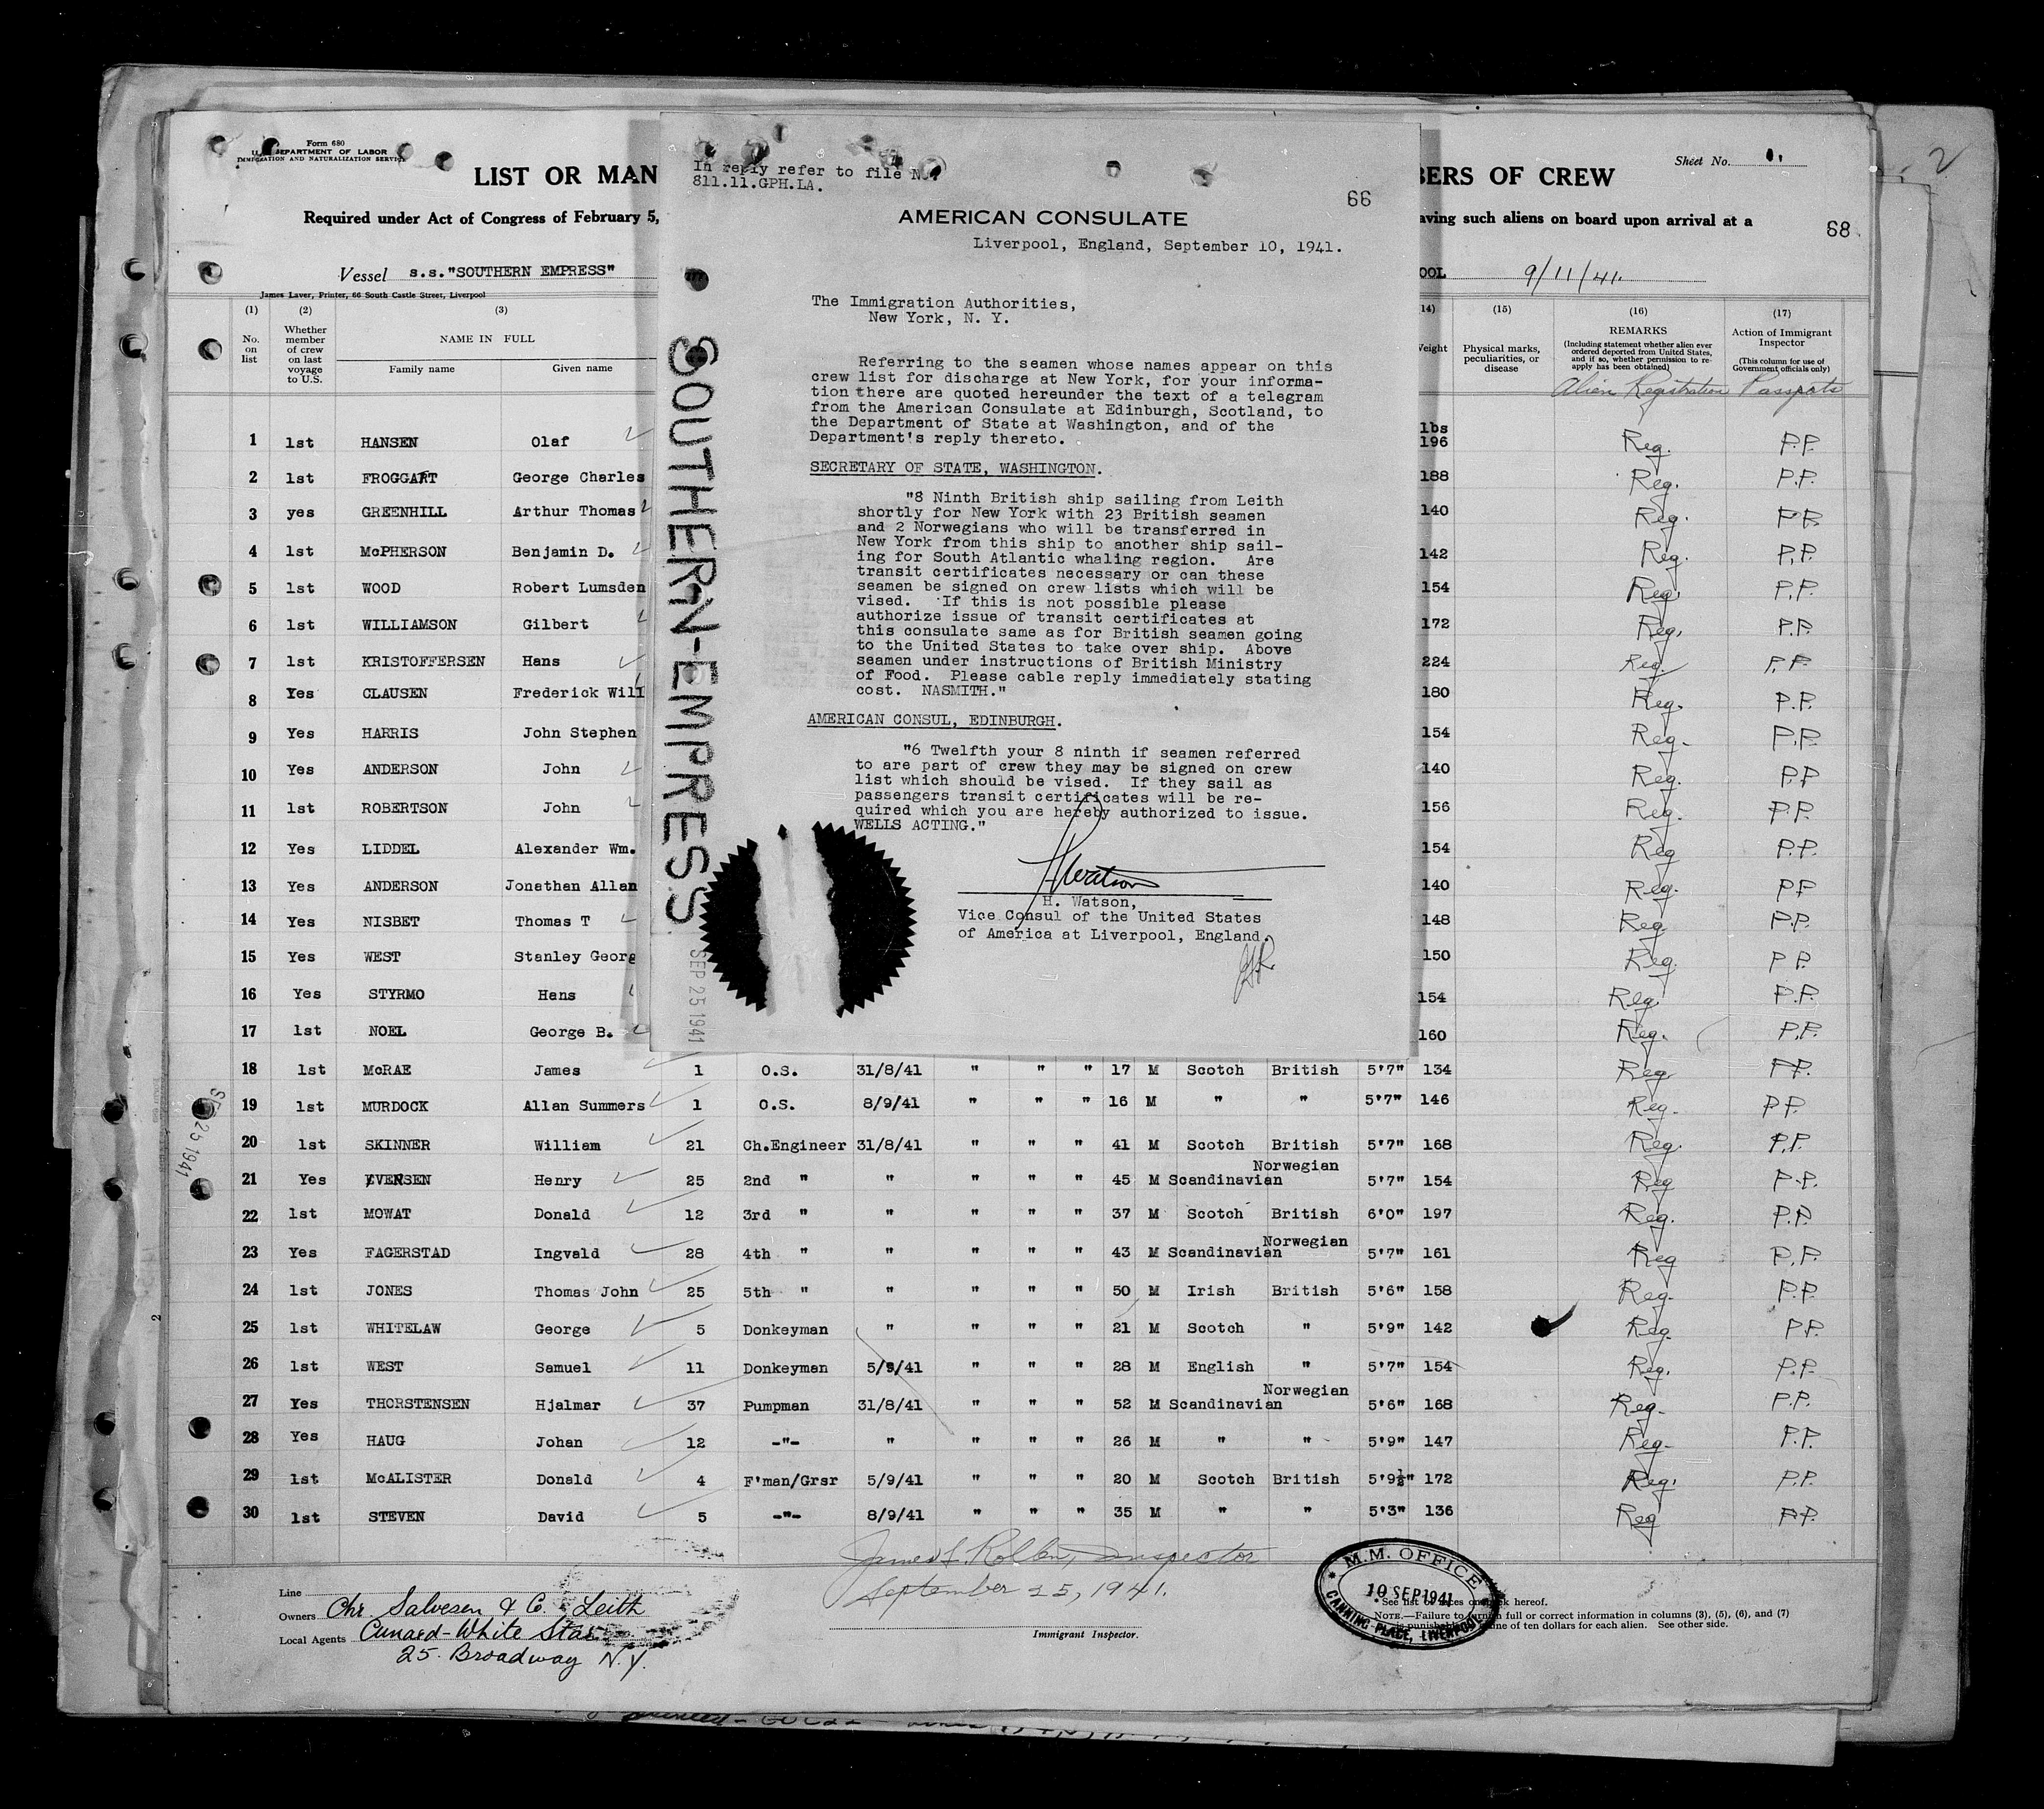 Form 680
DEPARTMENT OF LABOR
IMMIGRATION AND NATURALIZATION SERVICE
LIST OR MAN
BERS OF CREW
Sheet No. 1.
2
Required under Act of Congress of February 5,
aving such aliens on board upon arrival at a
68
Vessel s.s."SOUTHERN EMPRESS"
OOL 9/11/41.
James Laver, Printer, 66 South Castle Street, Liverpool
In reply refer to file No.
811.11.GPH.LA.
66
AMERICAN CONSULATE
Liverpool, England, September 10, 1941.
The Immigration Authorities,
New York, N. Y.
Referring to the seamen whose names appear on this
crew list for discharge at New York, for your informa-
tion there are quoted hereunder the text of a telegram
from the American Consulate at Edinburgh, Scotland, to
the Department of State at Washington, and of the
Department's reply thereto.
SECRETARY OF STATE, WASHINGTON.
"8 Ninth British ship sailing from Leith
shortly for New York with 23 British seamen
and 2 Norwegians who will be transferred in
New York from this ship to another ship sail-
ing for South Atlantic whaling region. Are
transit certificates necessary or can these
seamen be signed on crew lists which will be
vised. If this is not possible please
authorize issue of transit certificates at
this consulate same as for British seamen going
to the United States to take over ship. Above
seamen under instructions of British Ministry
of Food. Please cable reply immediately stating
cost. NASMITH."
AMERICAN CONSUL, EDINBURGH.
"6 Twelfth your 8 ninth if seamen referred
to are part of crew they may be signed on crew
list which should be vised. If they sail as
passengers transit certificates will be re-
quired which you are hereby authorized to issue.
WELLS ACTING."
H Watson
H. Watson,
Vice Consul of the United States
of America at Liverpool, England.
SOUTHERN-EMPRESS
SEP 25 1941
(1) (2) (3) (14) (15) (16) (17)
No. on list
Whether member of crew on last voyage to U.S.
NAME IN FULL
Family name Given name
Weight
Physical marks, peculiarities, or disease
REMARKS
(Including statement whether alien ever ordered deported from United States, and if so, whether permission to re-apply has been obtained)
Action of Immigrant Inspector
(This column for use of Government officials only)
Alien Registration Passports
lbs
1 1st HANSEN Olaf 196 Reg. P.P.
2 1st FROGGATT George Charles 188 Reg. P.P.
3 yes GREENHILL Arthur Thomas 140 Reg. P.P.
4 1st McPHERSON Benjamin D. 142 Reg. P.P.
5 1st WOOD Robert Lumsden 154 Reg. P.P.
6 1st WILLIAMSON Gilbert 172 Reg. P.P.
7 1st KRISTOFFERSEN Hans 224 Reg. P.P.
8 Yes CLAUSEN Frederick Will 180 Reg. P.P.
9 Yes HARRIS John Stephen 154 Reg. P.P.
10 Yes ANDERSON John 140 Reg. P.P
11 1st ROBERTSON John 156 Reg. P.P.
12 Yes LIDDEL Alexander Wm. 154 Reg P.P.
13 Yes ANDERSON Jonathan Allan 140 Reg. PP
14 Yes NISBET Thomas T 148 Reg P.P.
15 Yes WEST Stanley Georg 150 Reg. P.P.
16 Yes STYRMO Hans 154 Reg. P.P.
17 1st NOEL George B. 160 Reg. P.P.
18 1st McRAE James 1 O.S. 31/8/41 " " " 17 M Scotch British 5'7" 134 Reg PP.
19 1st MURDOCK Allan Summers 1 O.S. 8/9/41 " " " 16 M " " 5'7" 146 Reg. P.P.
20 1st SKINNER William 21 Ch.Engineer 31/8/41 " " " 41 M Scotch British 5'7" 168 Reg. P.P.
21 Yes EVENSEN Henry 25 2nd " " " " " 45 M Scandinavian Norwegian 5'7" 154 Reg P.P.
22 1st MOWAT Donald 12 3rd " " " " " 37 M Scotch British 6'0" 197 Reg. P.P.
23 Yes FAGERSTAD Ingvald 28 4th " " " " " 43 M Scandinavian Norwegian 5'7" 161 Reg P.P.
24 1st JONES Thomas John 25 5th " " " " " 50 M Irish British 5'6" 158 Reg. P.P.
25 1st WHITELAW George 5 Donkeyman " " " " 21 M Scotch " 5'9" 142 Reg. P.P.
26 1st WEST Samuel 11 Donkeyman 5/9/41 " " " 28 M English " 5'7" 154 Reg. P.P.
27 Yes THORSTENSEN Hjalmar 37 Pumpman 31/8/41 " " " 52 M Scandinavian Norwegian 5'6" 168 Reg. P.P.
28 Yes HAUG Johan 12 -"- " " " " 26 M " " 5'9" 147 Reg. P.P.
29 1st McALISTER Donald 4 F'man/Grsr 5/9/41 " " " 20 M Scotch British 5'9½" 172 Reg. P.P.
30 1st STEVEN David 5 -"- 8/9/41 " " " 35 M " " 5'3" 136 Reg P.P.
SEP 25 1941
2
Line
Owners Chr. Salvesen & Co. Leith
Local Agents Cunard-White Star
25 Broadway N.Y.
Inspector
September 25, 1941.
Immigrant Inspector.
M.M. OFFICE
10 SEP 1941
CANNING PLACE, LIVERPOOL
* See list of races on back hereof.
NOTE.—Failure to furnish full or correct information in columns (3), (5), (6), and (7)
is punishable fine of ten dollars for each alien. See other side.